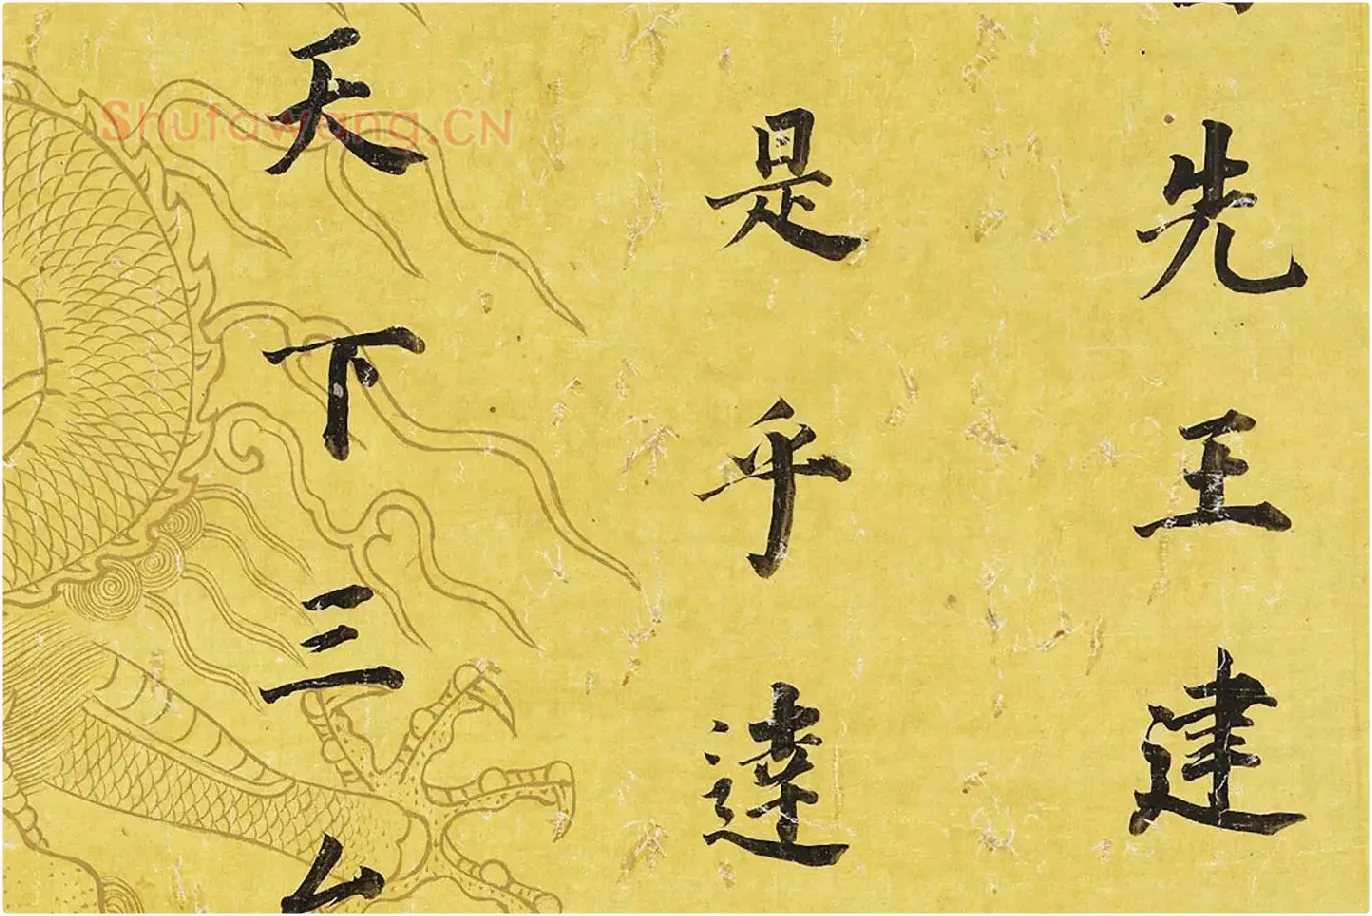 先王建
是乎達
天下三
Shufawang.CN